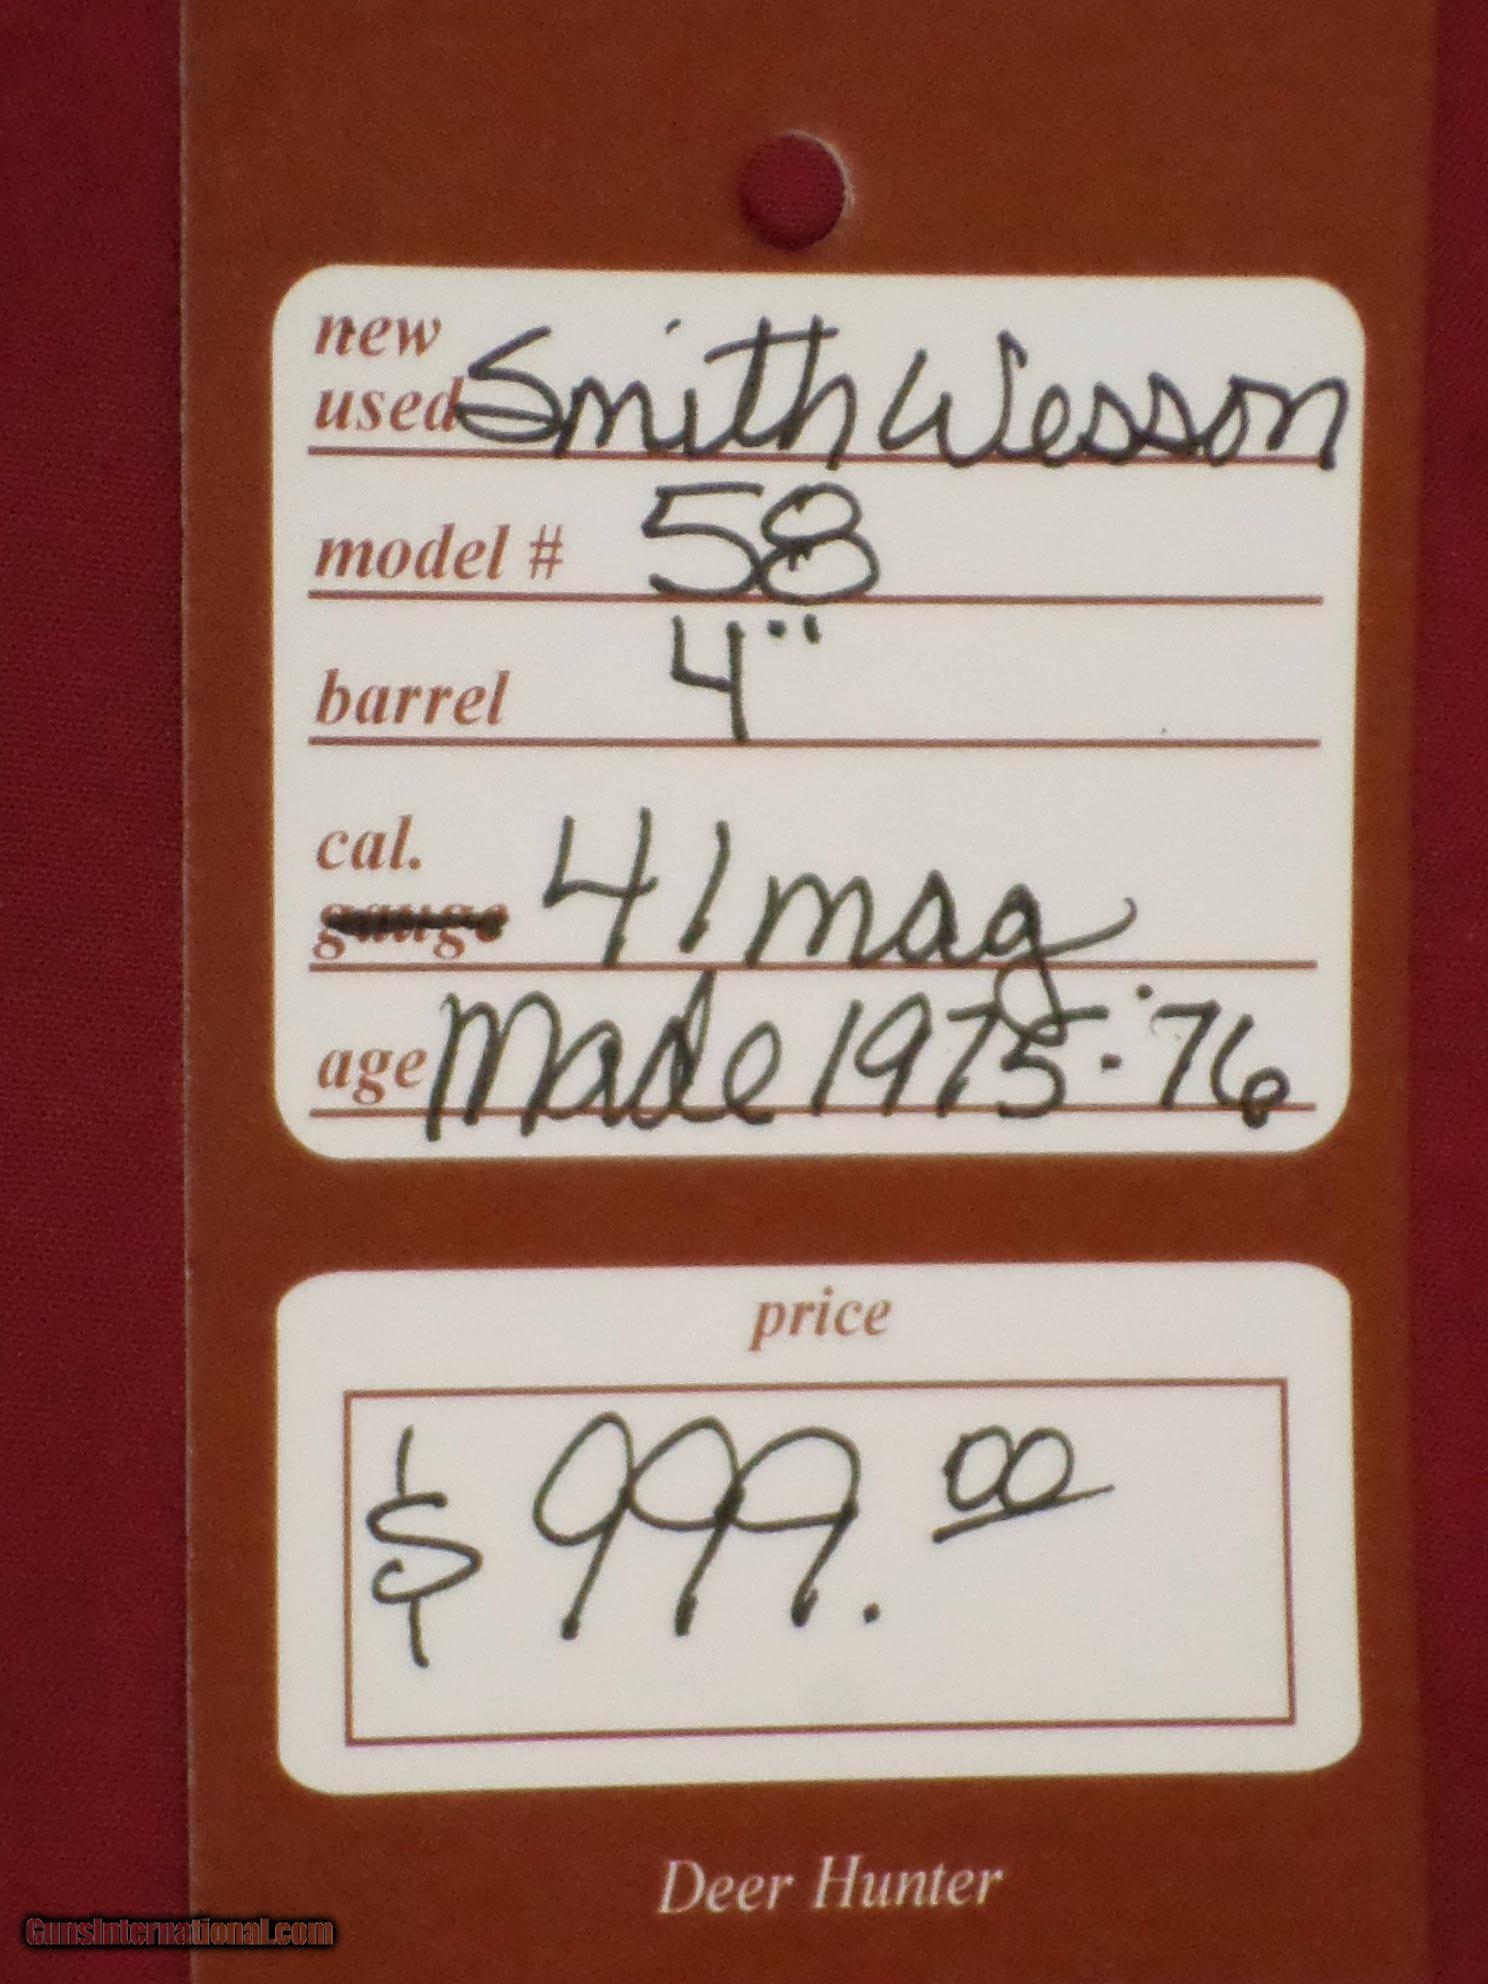 new
used Smith Wesson
model # 58
barrel 4"
cal.
gauge 41 mag
age Made 1975-'76
price
$ 999.00
Deer Hunter
GunsInternational.com